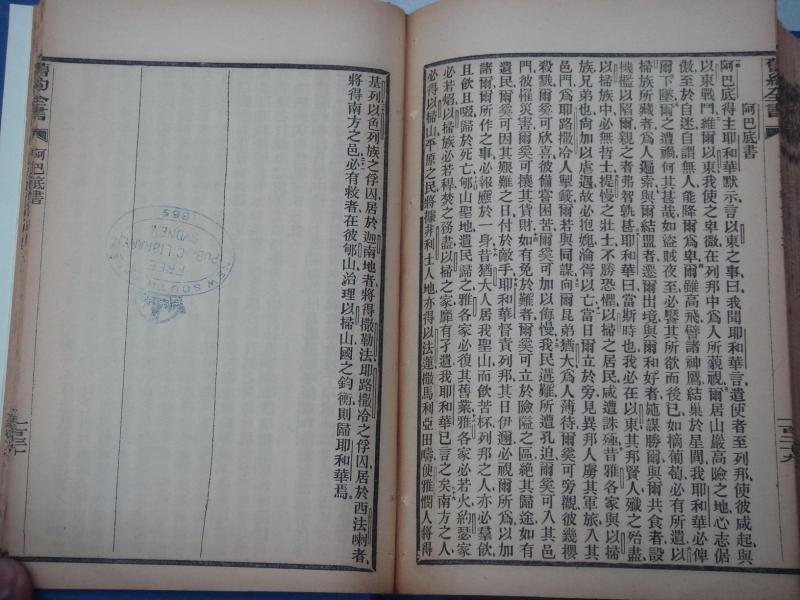 舊約全書
阿巴底書
阿巴底得主耶和華默示言以東之事曰我聞耶和華言遣使者至列邦使彼咸起與
以東戰鬥維爾以東我使之卑微在列邦中爲人所藐視爾居山巖高險之地心志倨
傲至於自迷自謂無人能降爾爲卑爾雖高飛譬諸神鷹結巢於星間我耶和華必俾
爾下墜爾之遭禍何其甚哉如盜賊夜至必饜其所欲而後已如摘葡萄必有所遺以
掃族所藏者爲人遍索與爾結盟者逐爾出境與爾和好者施謀勝爾與爾共食者設
機檻以陷爾視之者弗智孰甚耶和華曰當斯時也我必在以東其邦賢人殲之殆盡
以掃族中必無哲士提慢之壯士不勝恐懼以掃之居民咸遭誅殛昔雅各家與以掃
族兄弟也尚加以虐遇故必抱媿淪胥以亡當日爾立於旁見異邦人虜其軍旅入其
邑門爲耶路撒冷人掣籤爾若與同謀向爾昆弟猶大爲人薄待爾奚可旁觀彼幾櫻
殺戮爾奚可欣喜彼備嘗困苦爾奚可加以侮慢我民遘難所遭孔迫爾奚可入其邑
門彼罹災害爾奚可攘其貨財如有免於難者爾奚可立於險隘之區絕其歸途如有
遺民爾奚可因其艱難之日付於敵手耶和華督責列邦其日伊邇必視爾所爲以加
諸爾爾所作之事必報應於一身昔猶大人居我聖山而飲苦杯列邦之人亦必羣飲
且飲且啜歸於死亡郇山聖地遺民歸之雅各家必復其舊業雅各家必若火約瑟家
必若焰以掃族必若稈焚之務盡以掃之家靡有孑遺我耶和華已言之矣南方之人
必得以掃山平原之民將據非利士人地亦得以法蓮撒馬利亞田疇便雅憫人將得
一百二十九
基列以色列族之俘囚居於迦南地者將得撒勒法耶路撒冷之俘囚居於西法喇者
將得南方之邑必有救者在彼郇山治理以掃山國之鈞衡則歸耶和華焉
舊約全書
阿巴底書
一百三十
NEW SOUTH
FREE
PUBLIC LIBRARY
SYDNEY